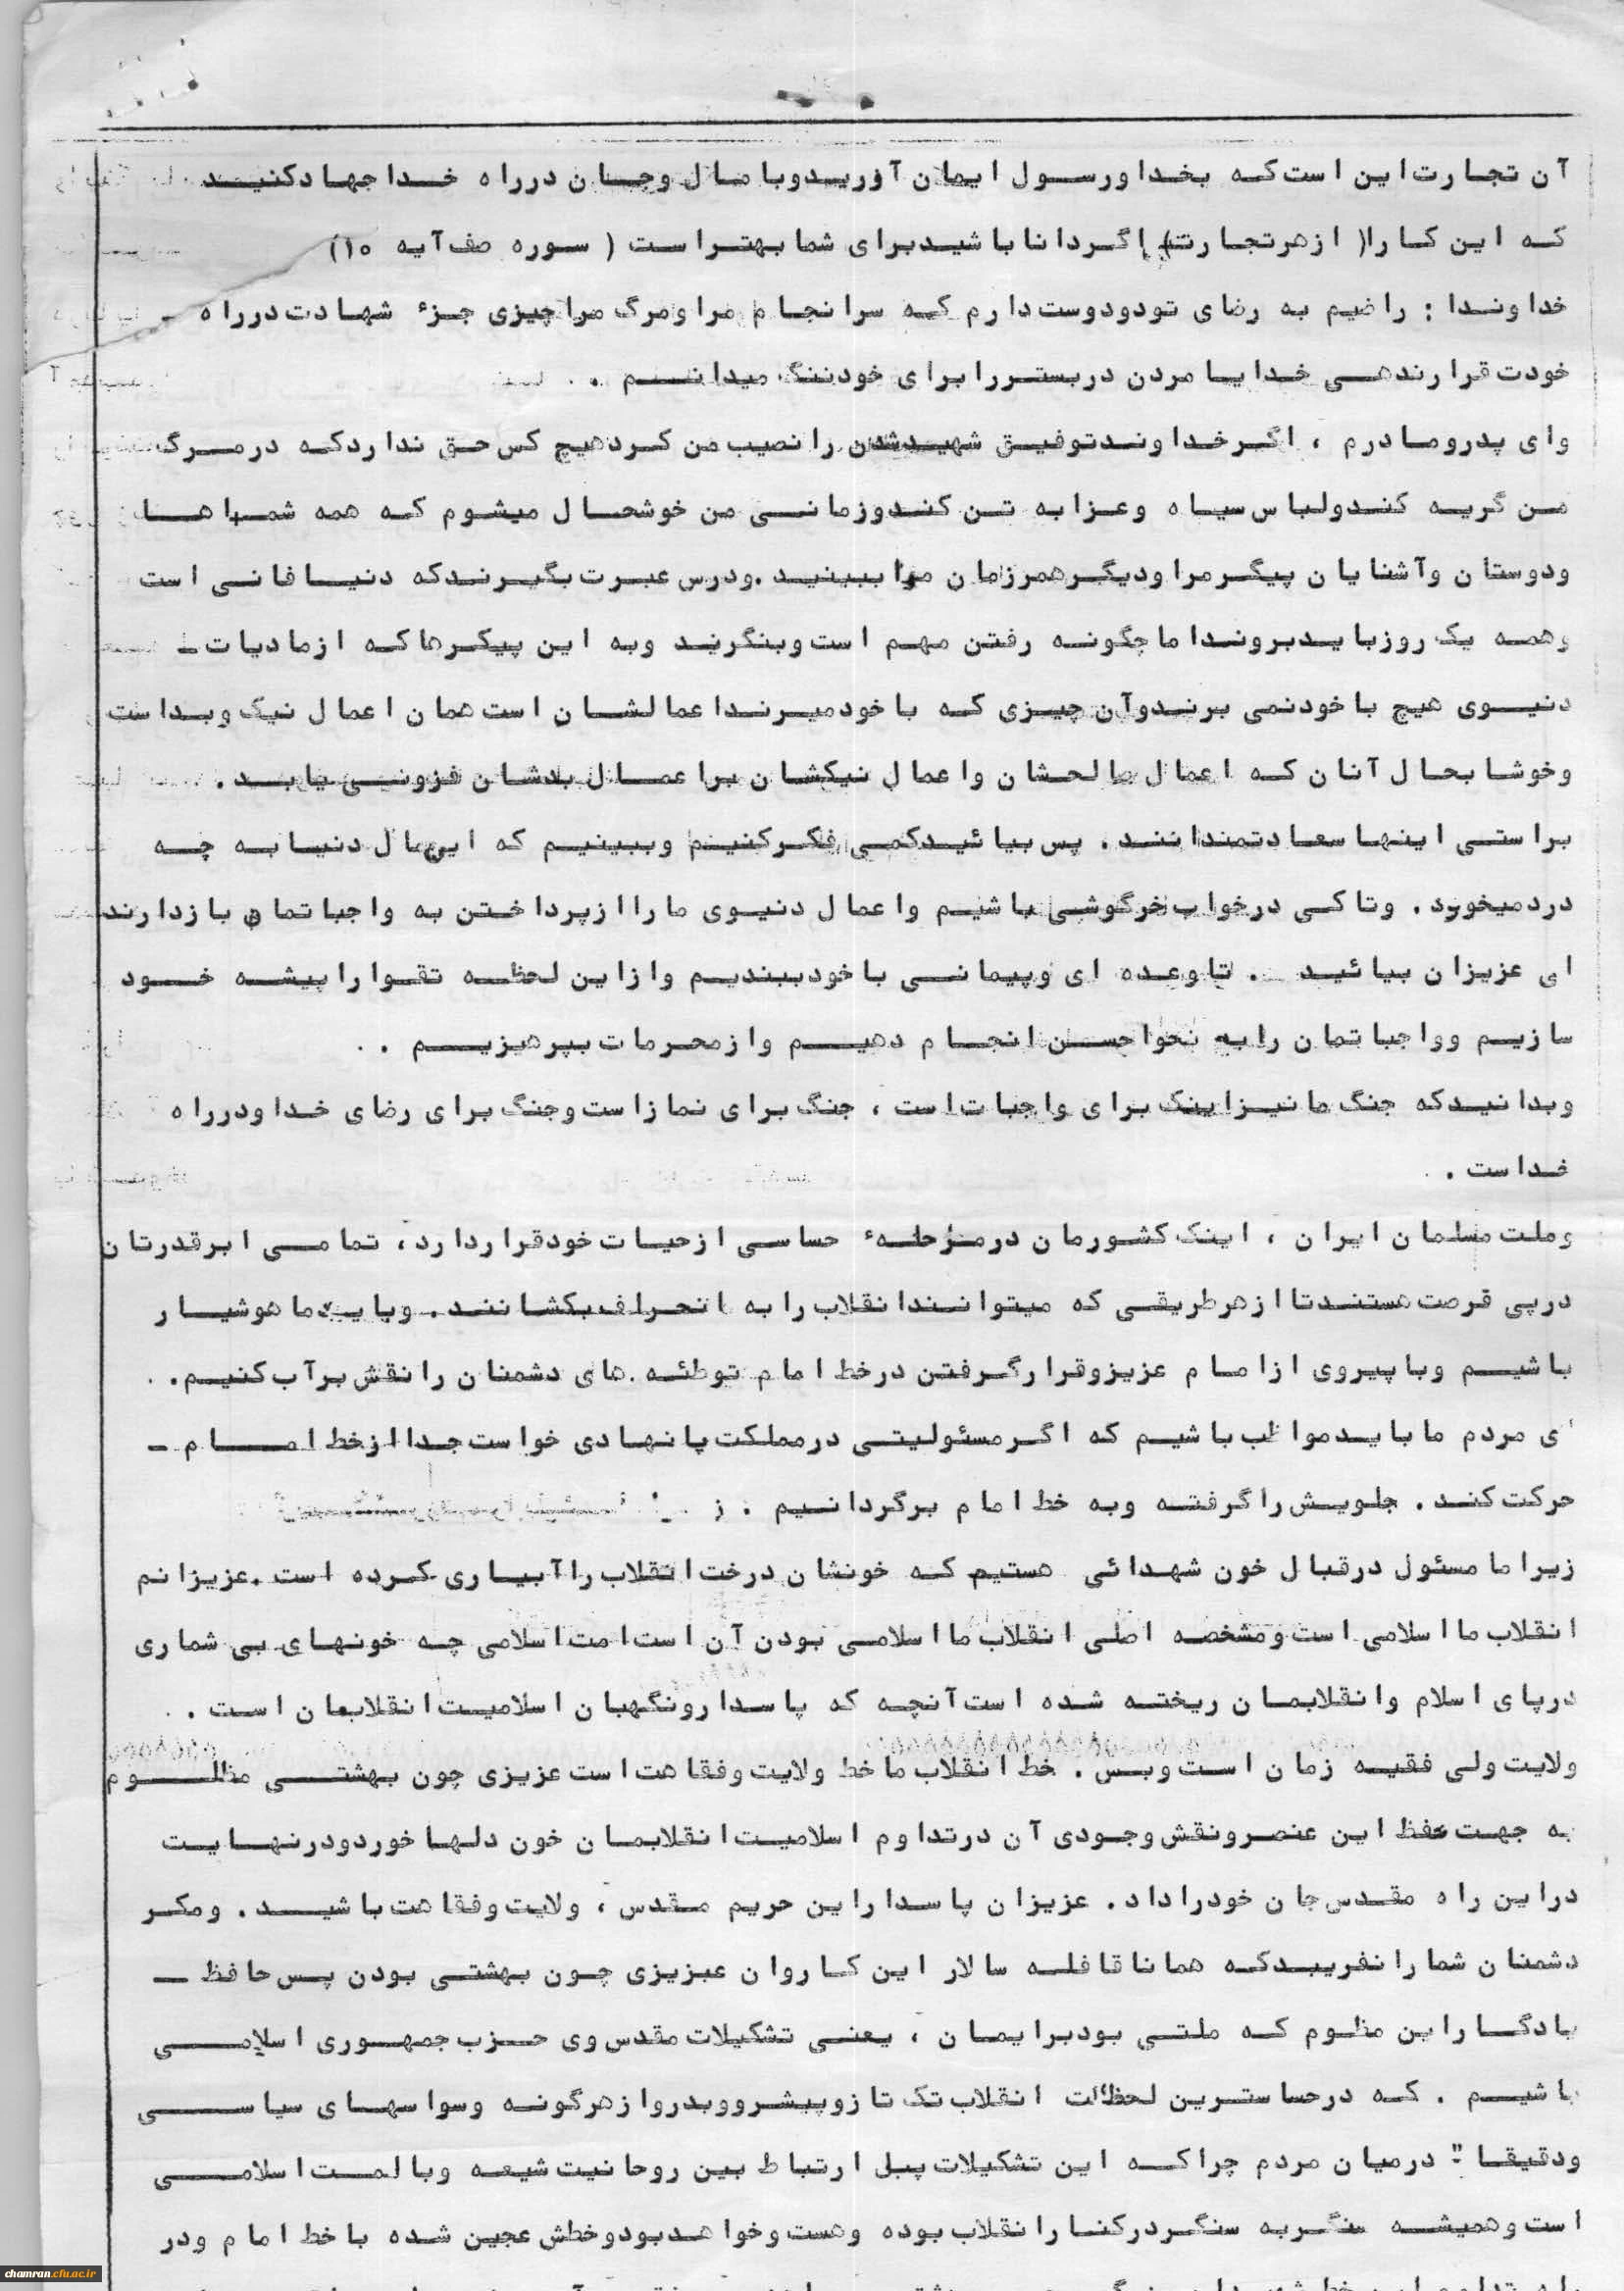 آن تجارت این است که بخدا ورسول ایمان آورید وبا مال وجان درراه خدا جهاد کنید
که این کار را( ازهرتجارت) اگر دانا باشید برای شما بهتر است ( سوره صف آیه ۱۰)
خداوندا : راضیم به رضای تو دوست دارم که سرانجام مرا ومرگ مرا چیزی جزء شهادت درراه -
خودت قرار ندهی خدایا مردن دربستر را برای خود ننگ میدانم .
وای پدر ومادرم ، اگر خداوند توفیق شهید شدن را نصیب من کرد هیچ کس حق ندارد که در مرگ
من گریه کند ولباس سیاه وعزا به تن کند وزمانی من خوشحال میشوم که همه شما ها
ودوستان وآشنایان پیگر مرا ودیگر همرزمان مرا ببینید .ودرس عبرت بگیرند که دنیا فانی است
وهمه یک روز باید بروند اما چگونه رفتن مهم است وبنگرند وبه این پیکرها که ازمادیات -
دنیوی هیچ با خود نمی برند وآن چیزی که با خود میرند اعمالشان است همان اعمال نیک وبد است
وخوشا بحال آنان که اعمال صالحشان واعمال نیکشان بر اعمال بدشان فزونی یابد .
براستی اینها سعادتمندانند . پس بیائید کمی فکر کنیم وببینیم که این مال دنیا به چه
درد میخورد . وتاکی درخواب خرگوشی باشیم واعمال دنیوی ما را ازپرداختن به واجباتمان بازدارند
ای عزیزان بیائید . تا وعده ای وپیمانی با خود ببندیم وازاین لحظه تقوا را پیشه خود
سازیم وواجباتمان را به نحو احسن انجام دهیم واز محرمات بپرهیزیم .
وبدانید که جنگ ما نیز اینک برای واجبات است ، جنگ برای نماز است وجنگ برای رضای خدا ودرراه
خداست .
وملت مسلمان ایران ، اینک کشورمان درمرحلهء حساسی ازحیات خود قرار دارد، تمامی ابرقدرتان
درپی فرصت هستند تا ازهر طریقی که میتوانند انقلاب را به انحراف بکشانند . وباید ما هوشیار
باشیم وبا پیروی ازامام عزیز وقرار گرفتن درخط امام توطئه های دشمنان را نقش برآب کنیم.
ای مردم ما باید مواظب باشیم که اگر مسئولیتی درمملکت یا نهادی خواست جدا ازخط امام -
حرکت کند . جلویش را گرفته وبه خط امام برگردانیم .
زیرا ما مسئول درقبال خون شهدائی هستیم که خونشان درخت انقلاب را آبیاری کرده است .عزیزانم
انقلاب ما اسلامی است ومشخصه اصلی انقلاب ما اسلامی بودن آن است امت اسلامی چه خونهای بی شماری
درپای اسلام وانقلابمان ریخته شده است آنچه که پاسدار ونگهبان اسلامیت انقلابمان است .
ولایت ولی فقیه زمان است وبس . خط انقلاب ما خط ولایت وفقاهت است عزیزی چون بهشتی مظلوم
به جهت حفظ این عنصر ونقش وجودی آن درتداوم اسلامیت انقلابمان خون دلها خورد ودرنهایت
دراین راه مقدس جان خود را داد . عزیزان پاسدار این حریم مقدس ، ولایت وفقاهت باشید . ومکر
دشمنان شما را نفریبد که همانا قافله سالار این کاروان عبزیزی چون بهشتی بودن پس حافظ -
یادگار این مظوم که ملتی بود برایمان ، یعنی تشکیلات مقدس وی حزب جمهوری اسلامی
باشیم . که درحساسترین لحظات انقلاب تک تاز وپیشرو وبدور ازهرگونه وسواسهای سیاسی
ودقیقا " درمیان مردم چرا که این تشکیلات پبل ارتباط بین روحانیت شیعه وبا لمت اسلامی
است وهمیشه سنگر به سنگر درکنار انقلاب بوده وهست وخواهد بود وخطش عجین شده با خط امام ودر
chamran.cfu.ac.ir